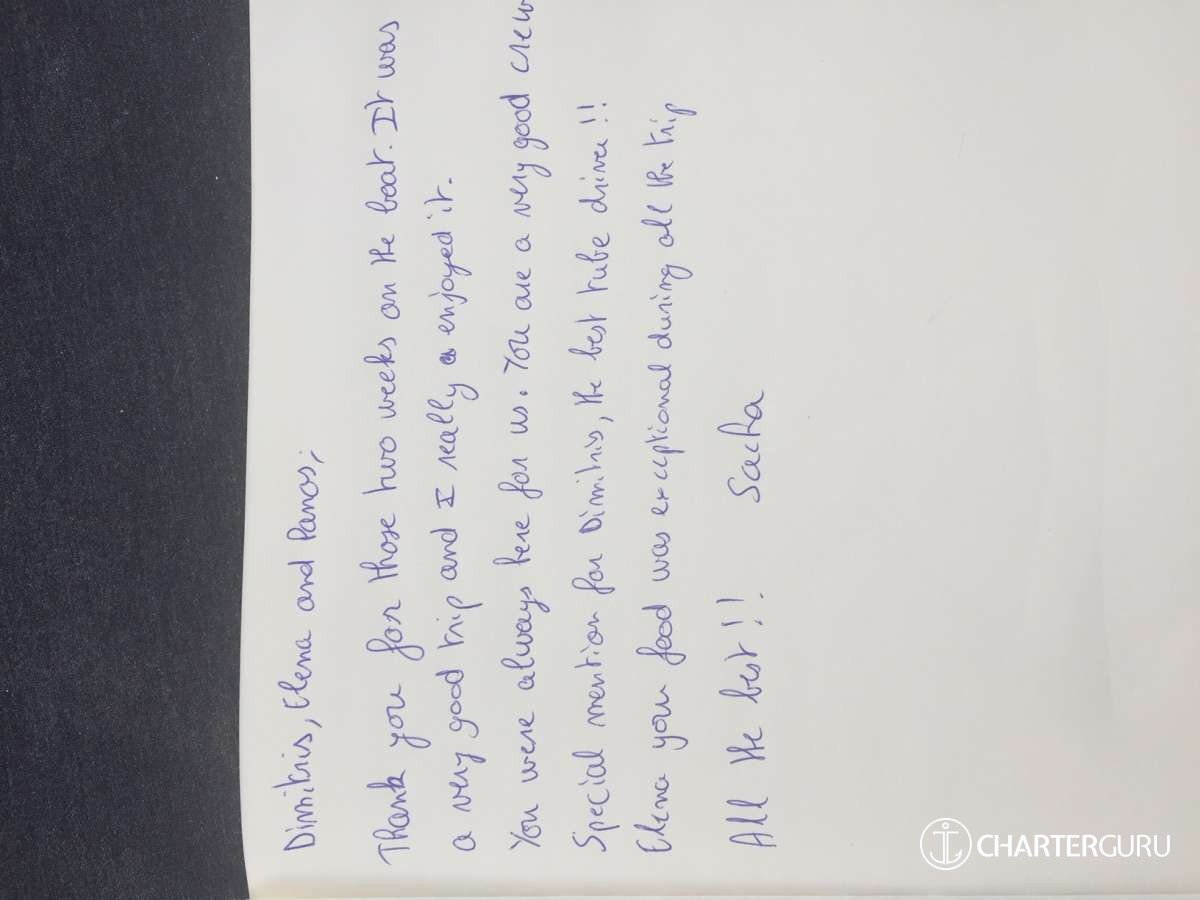 Dimitris, Elena and Panos,
Thank you for those two weeks on the boat. It was
a very good trip and I really enjoyed it.
You were always here for us. You are a very good crew
Special mention for Dimitris, the best tube driver !!
Elena you food was exceptional during all the trip
All the best !! Sacha
CHARTERGURU